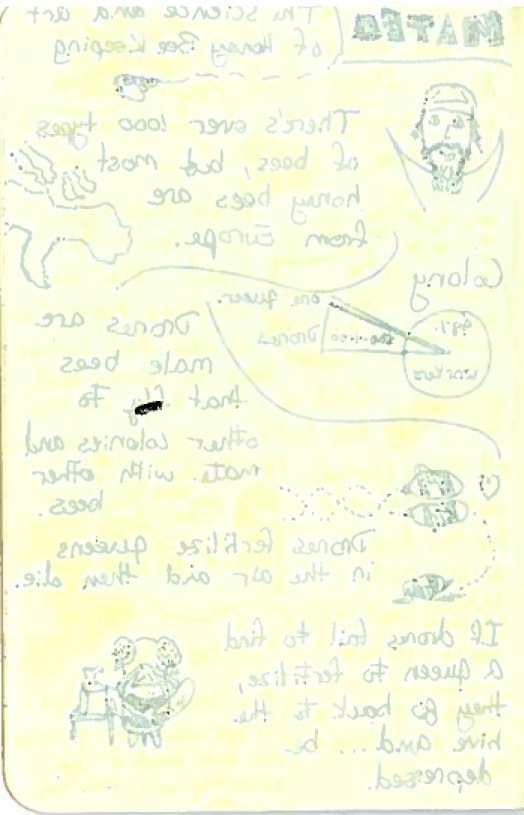 MATEO
The science and art
of Honey Bee Keeping
There's over 1000 types
of bees, but most
honey bees are
from Europe.
Colony
98%
workers
one queen.
Drones
Drones are
male bees
that fly to
other colonies and
mate with other
bees.
Drones fertilize queens
in the air and then die.
If drones fail to find
a queen to fertilize,
they go back to the
hive and... be
depressed.